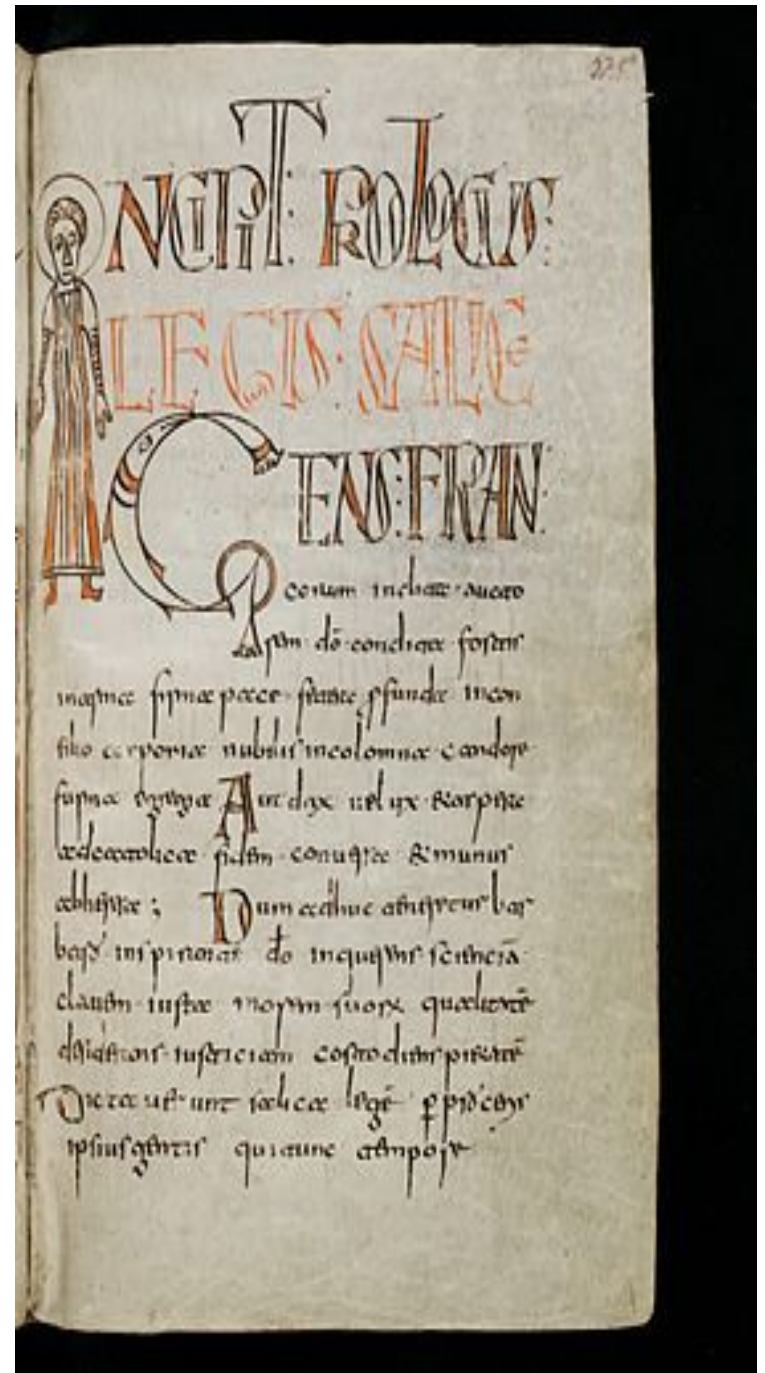 275
INCIPIT PROLOGUS
LEGIS SALICE
GENS FRAN
corum inclita aucto
rem dō condita fortis
in arma firma pace ꝓfunda in con
silio corporia nubilis incolomna candore
egregia Audax uelux & aspera
ad catolica fidem conuersa & munus
ab Dum adhuc teneretur bar
dō inquerens scienciā
clauem iusta morem qualitatē
iusticiam costodiens pietatē
Dictauerunt salica legē ꝑ
ipsius gentis qui tunc tempore